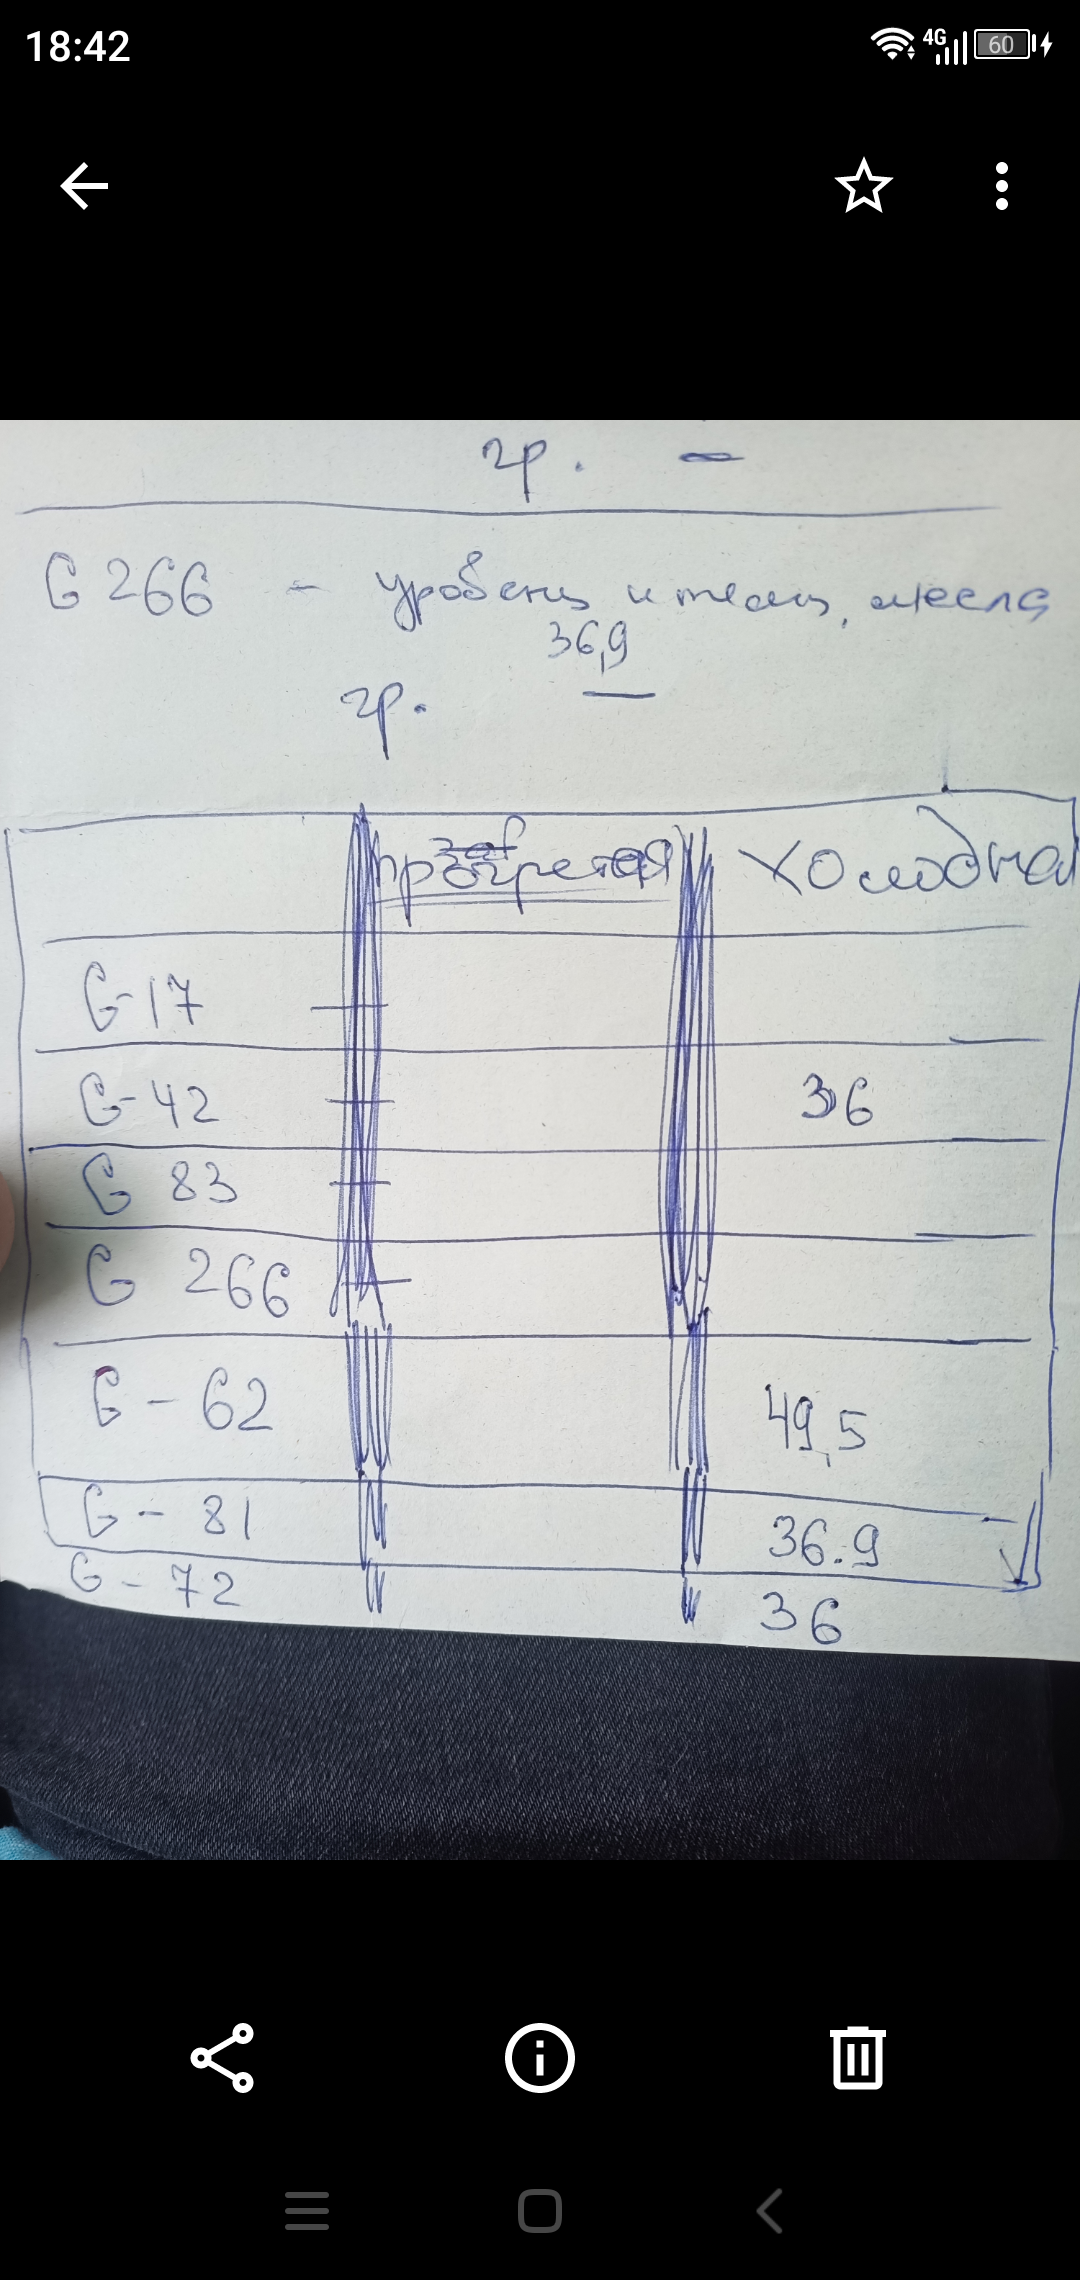 18:42
4G 60
гр. —
G 266 - уровень и темп, масла
36,9
гр. —
прогретая холодная
G-17
G-42 36
G 83
G 266
G - 62 49,5
G - 81 36.9
G - 72 36